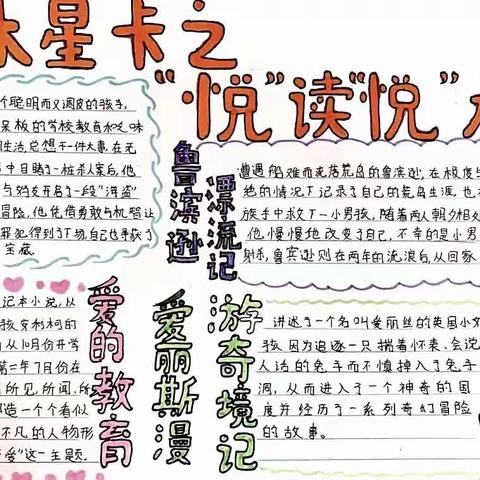 星卡之
"悦"读"悦"
个聪明而又调皮的孩子,
呆板的学校教育和乏味
生活,总想干一件大事,在无
中目睹一桩杀人案后,他
与好友开启了一段"海盗"
冒险,他凭借勇敢与机智让
罪犯得到了下场,自己也寻获了
宝藏。
鲁滨逊
漂流记
遭遇船难而流落荒岛的鲁滨逊,在极度
绝的情况下记录了自己的荒岛生涯,也
族手中救下一小男孩,随着两人朝夕相处
他慢慢地改变了自己,不幸的是小男
射杀,鲁宾逊则在两年的流浪后从回家
记本小说,从
孩安利柯的
从10月份开学
第二年7月份在
所见,所闻,所
造一个个看似
不凡的人物形
爱"这一主题。
爱的教育
爱丽斯漫
游奇境记
讲述了一个名叫爱丽丝的英国小女
孩,因为追逐一只揣着怀表、会说
人话的兔子而不慎掉入了兔子
洞,从而进入了一个神奇的国
度并经历了一系列奇幻冒险
的故事。